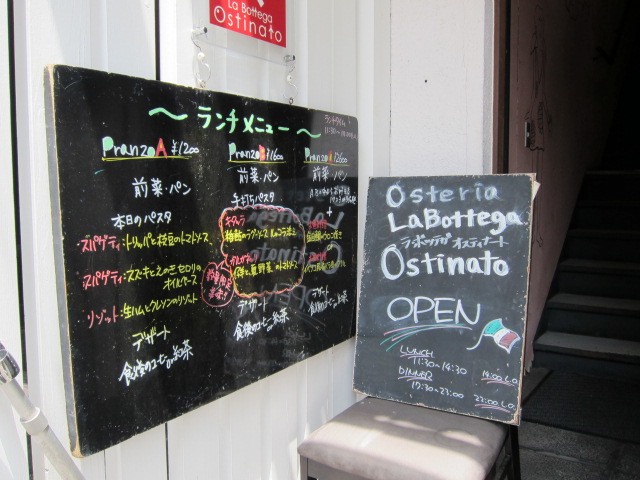 La Bottega
Ostinato
～ランチメニュー～
ランチタイム
Pranzo A ¥1200
前菜・パン
本日のパスタ
スパゲティ:トリッパと枝豆のトマトソース
スパゲティ:スズキとえのきセロリの
オイルベース
リゾット:生ハムとクレソンのリゾット
デザート
食後のコーヒーor紅茶
Pranzo B ¥1600
前菜・パン
手打ちパスタ
キタッラ
デザート
食後のコーヒーor紅茶
Pranzo
2600
前菜・パン
+
デザート
食後のコーヒーor紅茶
Osteria
La Bottega
ラ・ボッテガ オスティナート
Ostinato
OPEN
LUNCH
11:30～14:30
14:00 L.O
DINNER
17:30～23:00
22:00 L.O